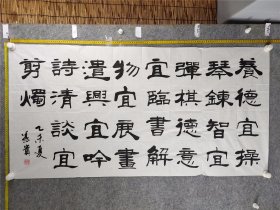 養德宜操
琴鍊智宜
彈棋德意
宜臨書解
物宜展畫
遣興宜吟
詩清談宜
剪燭
乙未夏